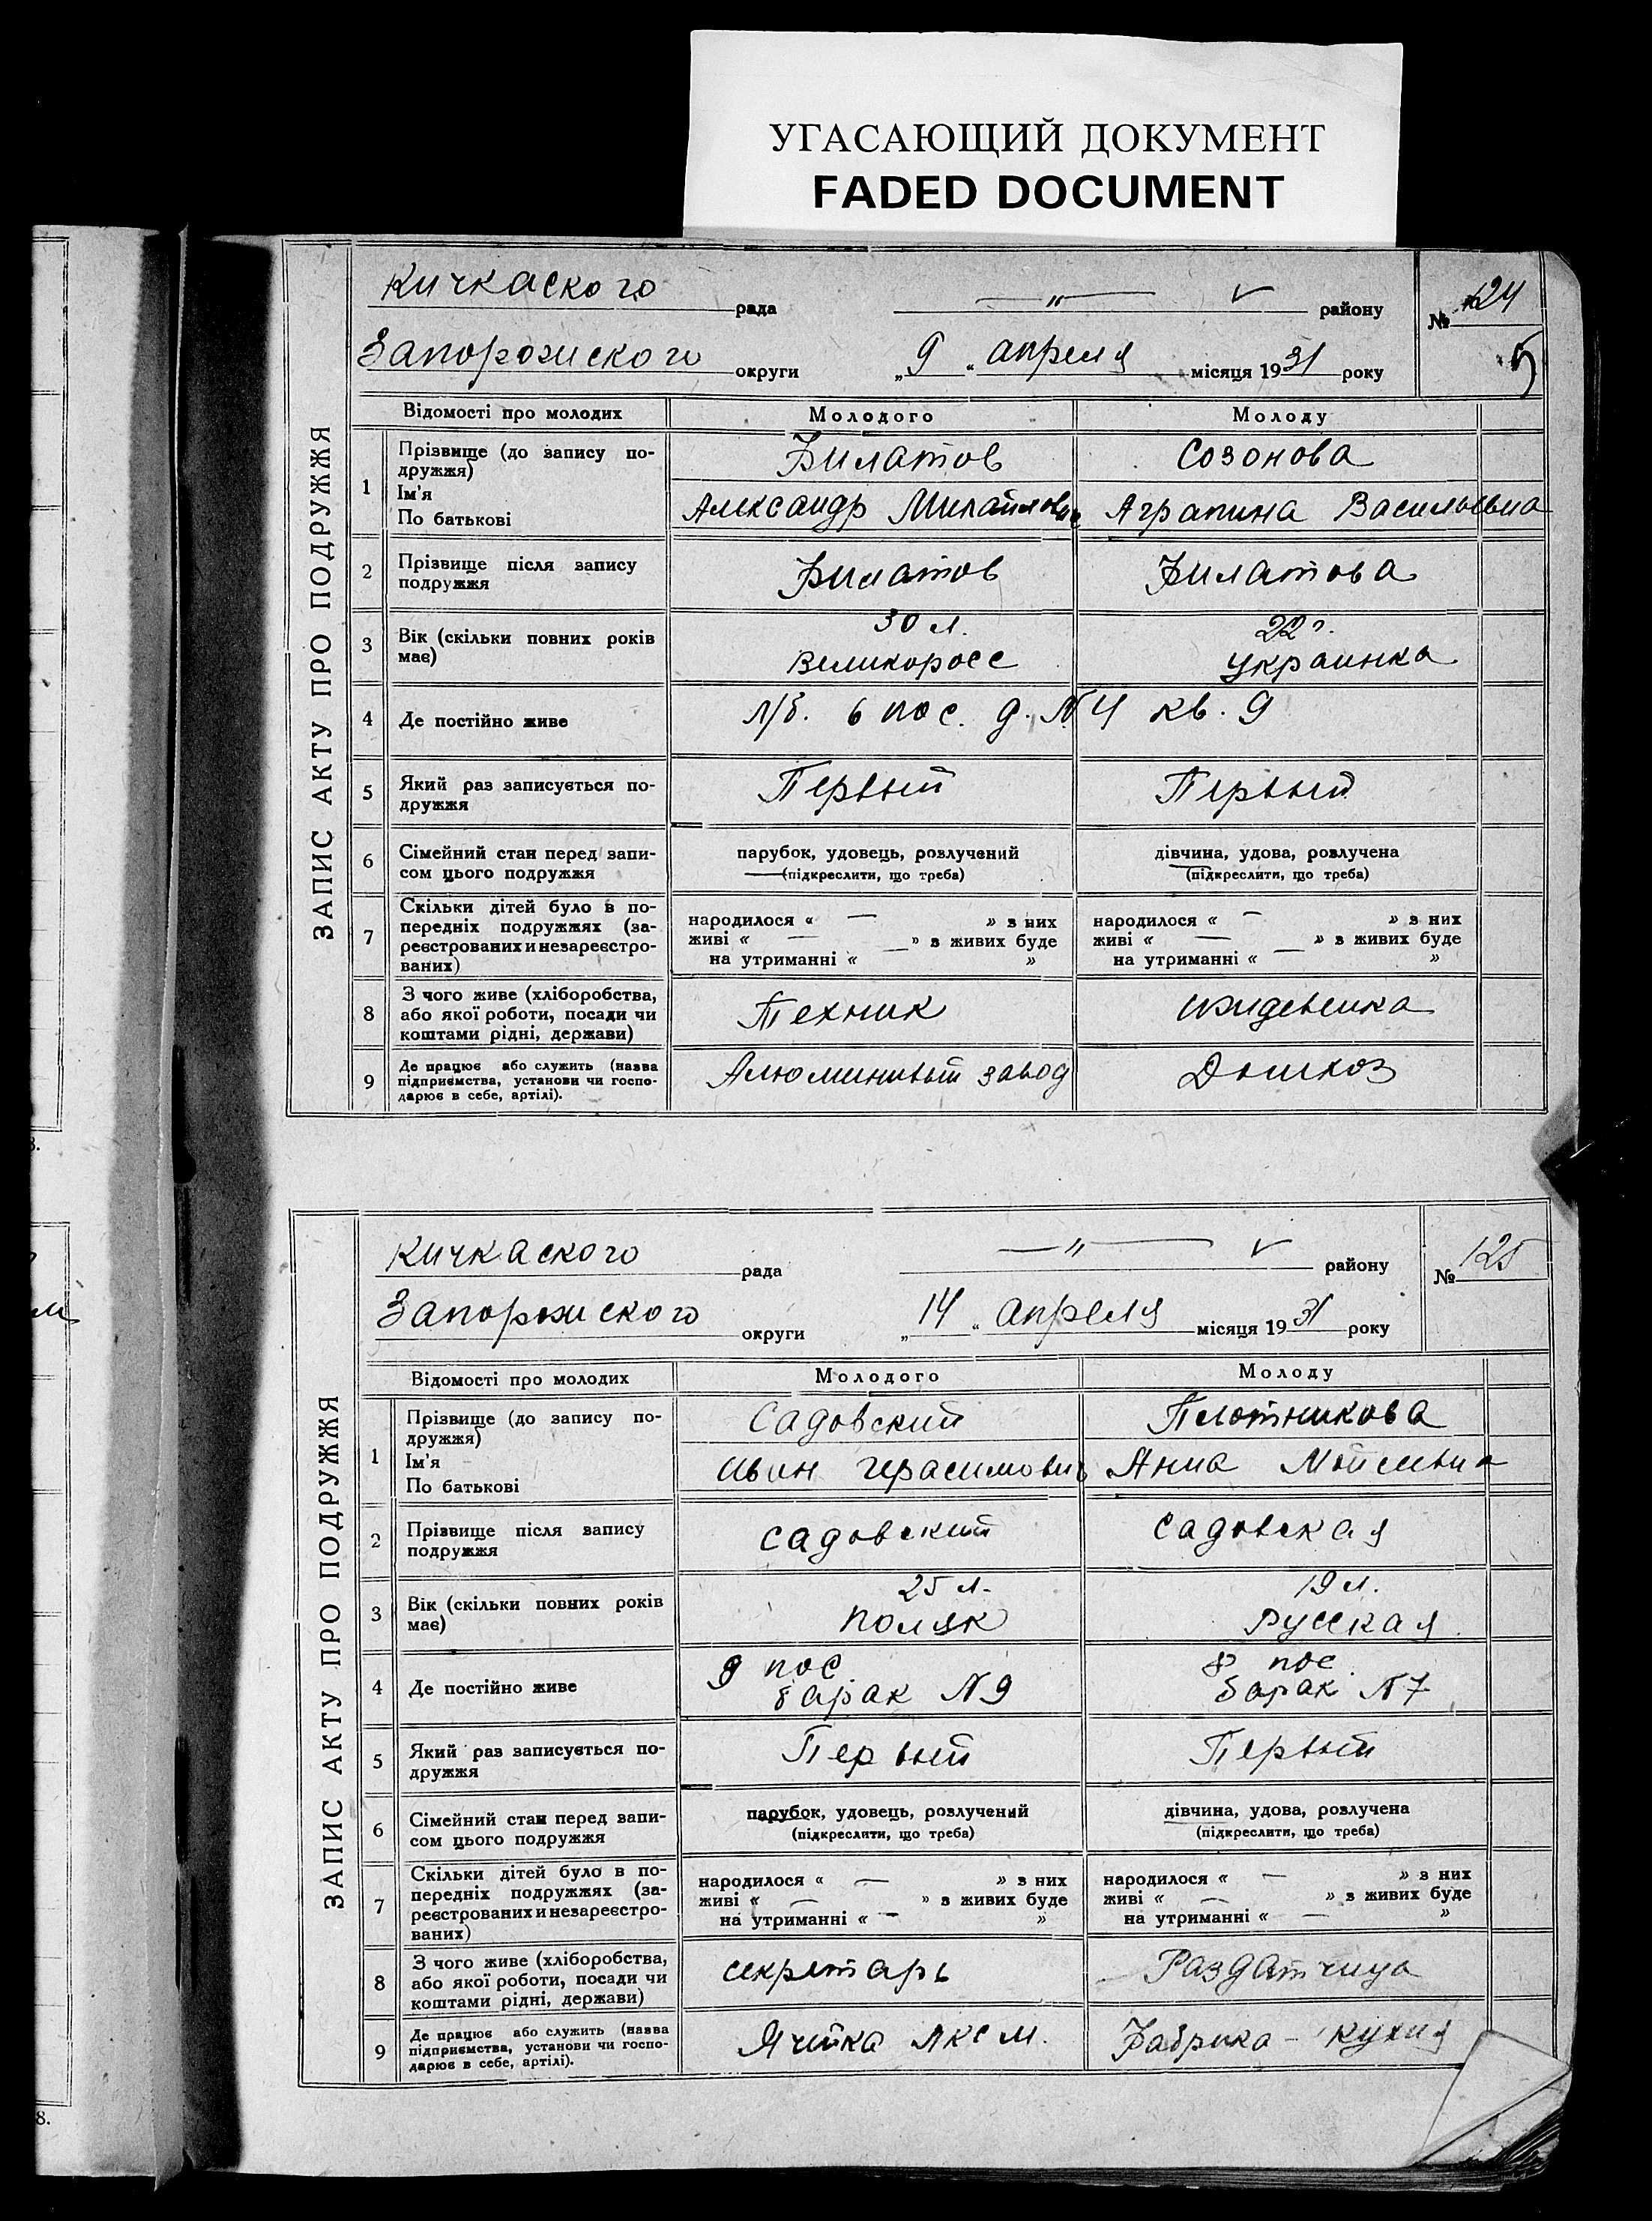 УГАСАЮЩИЙ ДОКУМЕНТ
FADED DOCUMENT
ЗАПИС АКТУ ПРО ПОДРУЖЖЯ
Кичкаского рада —„— ✓ району № 124
Запорожского округи „9“ апреля місяця 1931 року 5
Відомості про молодих Молодого Молоду
1 Прізвище (до запису по- Филатов Созонова
дружжя)
Ім'я Александр Аграпина Васильевна
По батькові
2 Прізвище після запису Филатов Филатова
подружжя
3 Вік (скільки повних років 30 л. 22 г.
має) Великоросс Украинка
4 Де постійно живе л/б. 6 пос. д. № 4 кв. 9
5 Який раз записується по- Первый Первый
дружжя
6 Сімейний стан перед запи- парубок, удовець, розлучений дівчина, удова, розлучена
сом цього подружжя (підкреслити, що треба) (підкреслити, що треба)
7 Скільки дітей було в по- народилося « — » з них народилося « — » з них
передніх подружжях (за- живі « — » з живих буде живі « — » з живих буде
реєстрованих и незареєстро- на утриманні « — » на утриманні « — »
ваних)
8 З чого живе (хліборобства, Техник Иждевенка
або якої роботи, посади чи
коштами рідні, держави)
9 Де працює або служить (назва Алюминивый завод
підприємства, установи чи госпо-
дарює в себе, артілі).
ЗАПИС АКТУ ПРО ПОДРУЖЖЯ
Кичкаского рада —„— ✓ району № 125
Запорожского округи „14“ апреля місяця 1931 року
Відомості про молодих Молодого Молоду
1 Прізвище (до запису по- Садовский Плотникова
дружжя)
Ім'я Иван Герасимович Анна
По батькові
2 Прізвище після запису Садовский Садовская
подружжя
3 Вік (скільки повних років 25 л. 19 л.
має) Поляк Русская
4 Де постійно живе 9 пос. 8 пос.
барак № 9 барак № 7
5 Який раз записується по- Первый Первый
дружжя
6 Сімейний стан перед запи- парубок, удовець, розлучений дівчина, удова, розлучена
сом цього подружжя (підкреслити, що треба) (підкреслити, що треба)
7 Скільки дітей було в по- народилося « — » з них народилося « — » з них
передніх подружжях (за- живі « — » з живих буде живі « — » з живих буде
реєстрованих и незареєстро- на утриманні « — » на утриманні « — »
ваних)
8 З чого живе (хліборобства, секретарь Раздатчица
або якої роботи, посади чи
коштами рідні, держави)
9 Де працює або служить (назва Ячейка ЛКСМ. Фабрика - кухня
підприємства, установи чи госпо-
дарює в себе, артілі).
8.